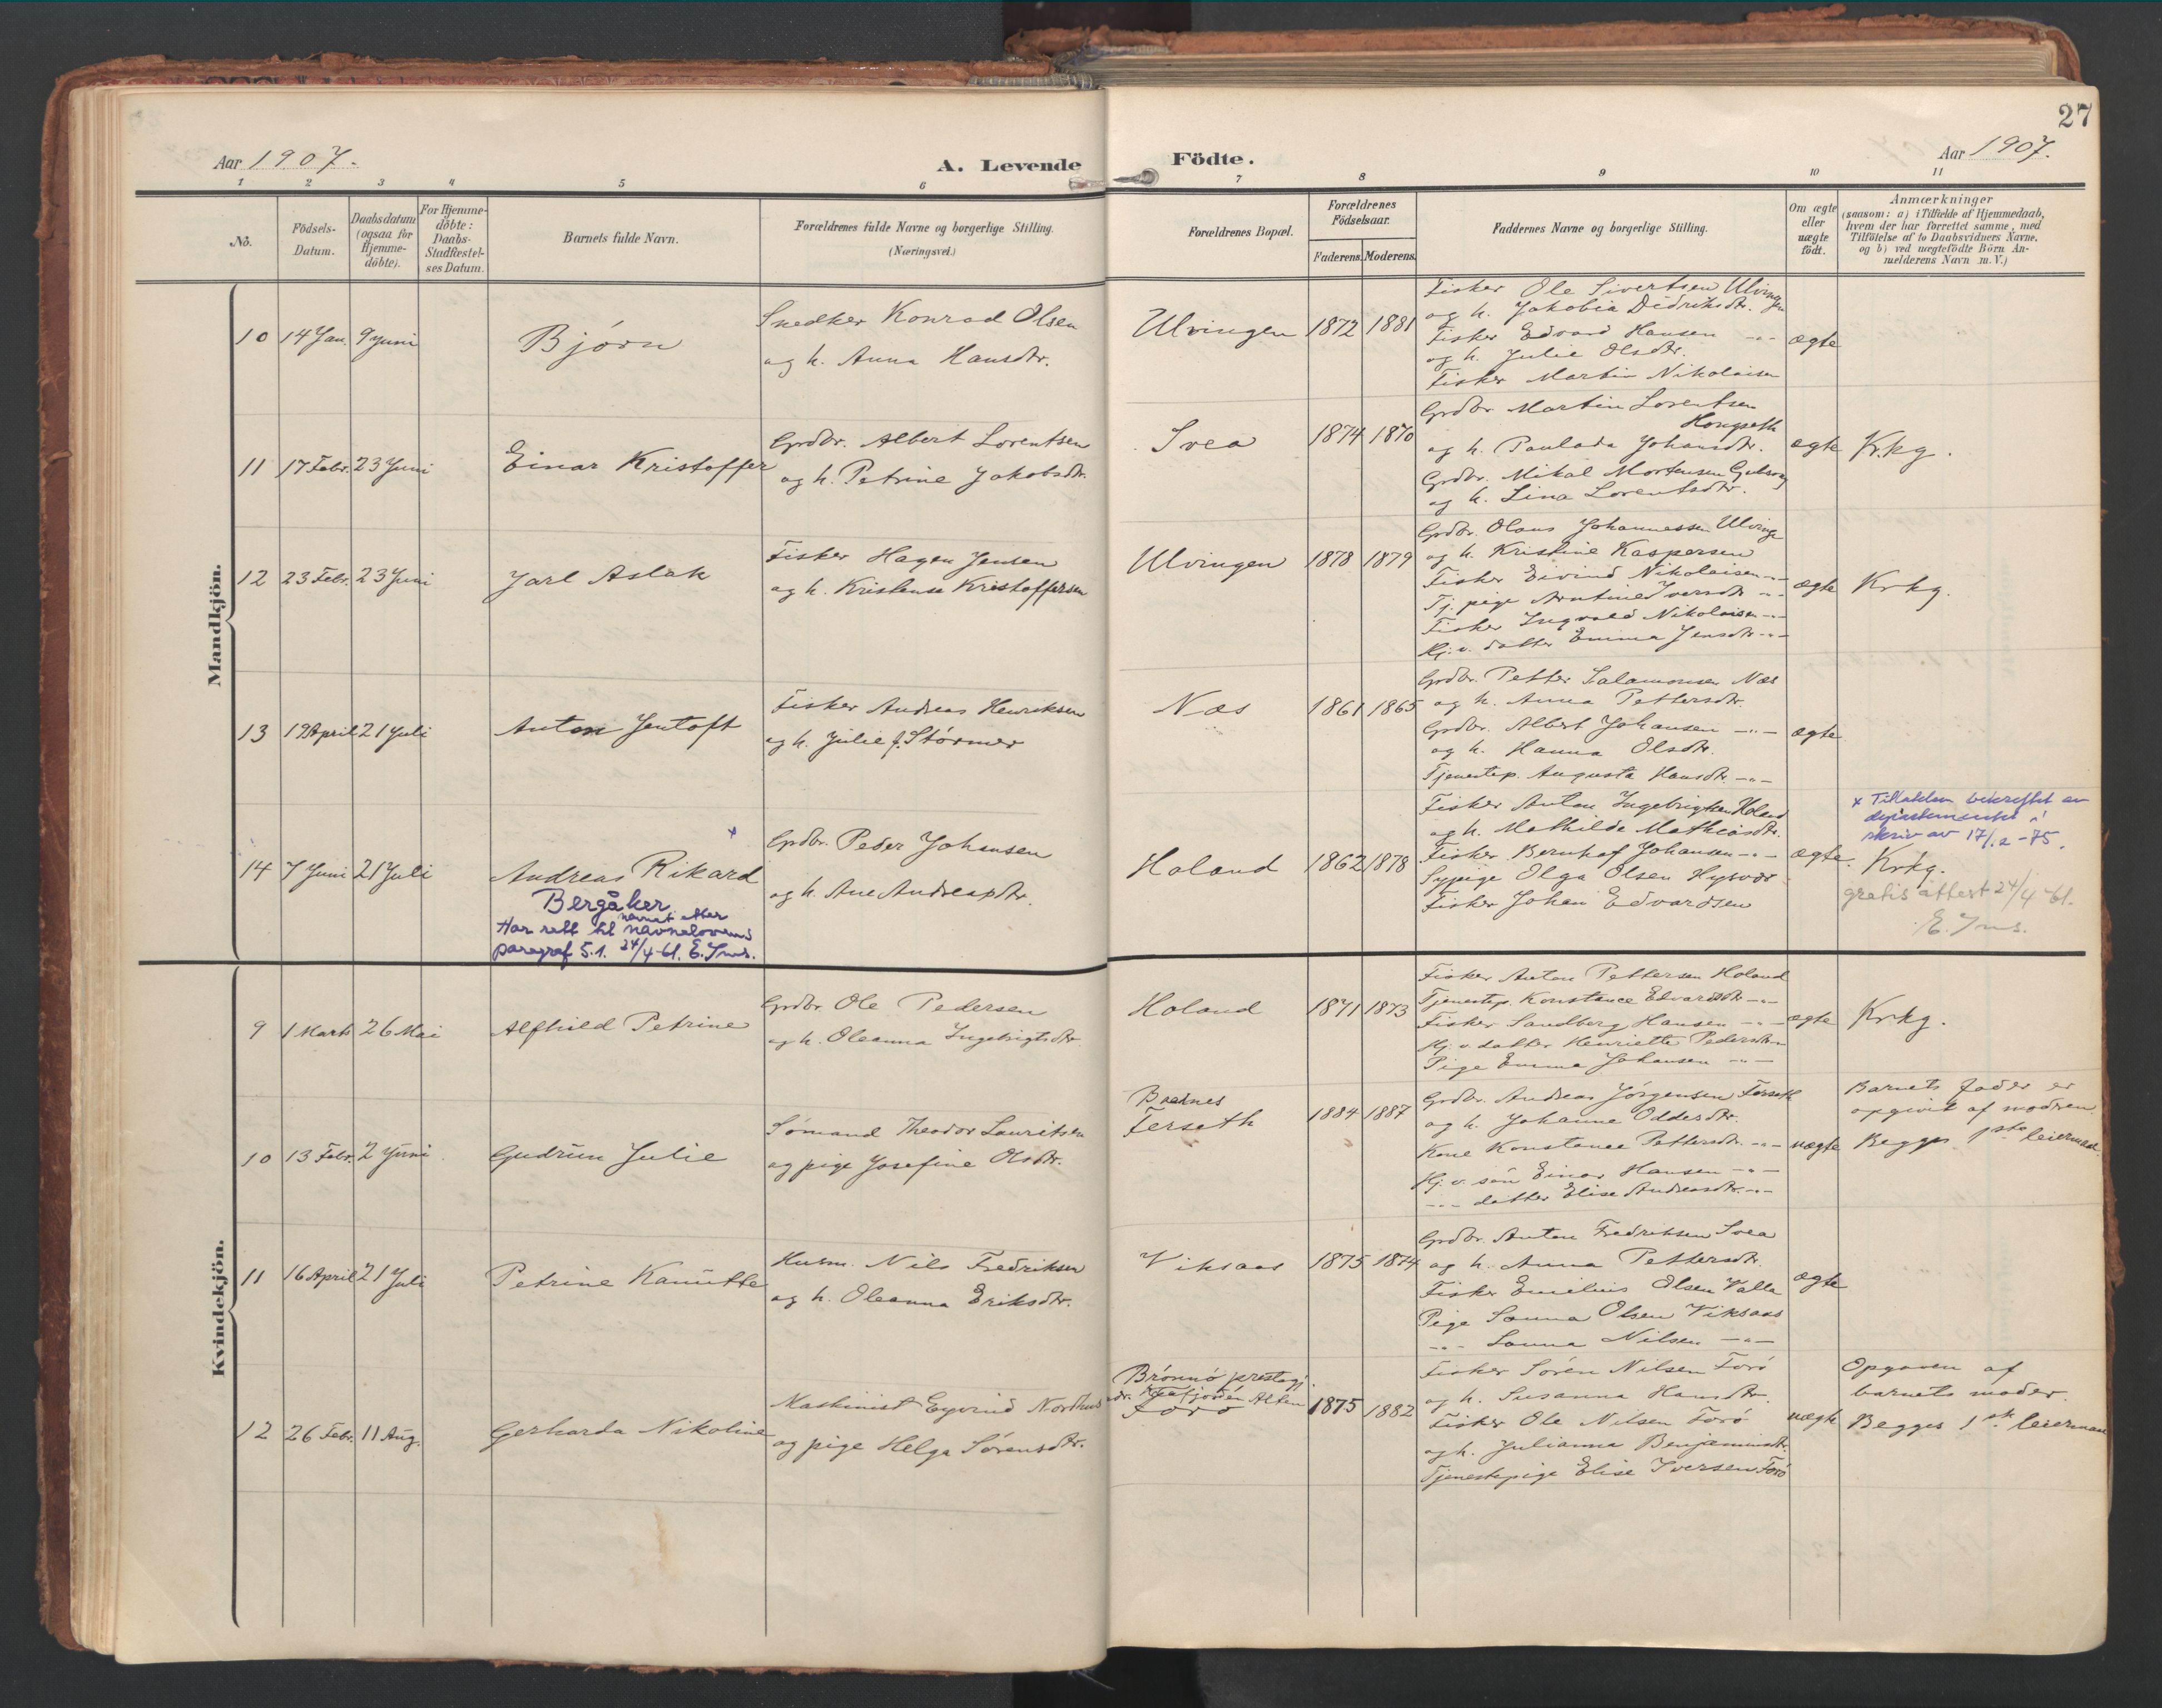 27
Aar 1907.
A. Levende Födte.
Aar 1907.
1 2 3 4 5 6 7 8 9 10 11
No.
Födsels-Datum.
Daabsdatum (ogsaa for Hjemme-döbte).
For Hjemme-döbte: Daabs-Stadfæstel-ses Datum.
Barnets fulde Navn.
Forældrenes fulde Navne og borgerlige Stilling. (Næringsvei.)
Forældrenes Bopæl.
Forældrenes Födselsaar.
Faderens. Moderens.
Faddernes Navne og borgerlige Stilling.
Om ægte eller uægte födt.
Anmærkninger
(saasom: a) i Tilfælde af Hjemmedaab,
hvem der har forrettet samme, med
Tilföielse af to Daabsvidners Navne,
og b) ved uægtefödte Börn An-
melderens Navn m. V.)
Mandkjön.
10 14 Jan. 9 Juni Bjørn
Snedker Konrad Olsen
og h. Anna Hansdtr.
Ulvingen 1872 1881
Fisker Ole Sivertsen Ulvingen
og h. Jakobia Didriksdtr.
Fisker Edvard Hansen -"-
og h. Julie Olsdtr.
Fisker Martin Nikolaisen
ægte
11 17 Febr. 23 Juni Einar Kristoffer
Grdbr. Albert Lorentsen
og h. Petrine Jakobsdtr.
Svea 1874 1870
Grdbr. Martin Lorentsen
Hongseth
og h. Paulada Johansdtr.
Grdbr. Mikal Mortensen
og h. Lina Lorentsdtr.
ægte Krkg.
12 23 Febr. 23 Juni Jarl Aslak
Fisker Hagen Jensen
og h. Kristense Kristoffersen
Ulvingen 1878 1879
Grdbr. Olaus Johannessen Ulvinge
og h. Kristine Kaspersen
Fisker Eivind Nikolaisen -"-
Tj. pige Arntine Iversdtr -"-
Fisker Ingvald Nikolaisen -"-
Hj. v. datter Emma Jensdtr -"-
ægte Krkg.
13 19 April 21 Juli Anton Jentoft
Fisker Andreas Henriksen
og h. Julie f. Störmer
Næs 1861 1865
Grdbr. Petter Salamonsen Næs
og h. Anna Pettersdtr.
Grdbr. Albert Johansen -"-
og h. Hanna Olsdtr.
Tjenestep. Augusta Hansdtr. -"-
ægte
14 7 Juni 21 Juli Andreas Rikard x
Bergåker
Har rett til navnet etter navnelovens
paragraf 5.1. 24/4-61. E. Jns.
Grdbr. Peder Johansen
og h. Ane Andreasdtr.
Holand 1862 1878
Fisker Anton Ingebrigtsen Holand
og h. Mathilde Mathiasdtr.
Fisker Bernhof Johansen -"-
Sypige Olga Olsen Hysvær
Fisker Johan Edvardsen
ægte.
x Tillatelsen bekreftet av
departementet i
skriv av 17/12-75.
Krkg.
gratis attest 24/4-61.
E. Jns.
Kvindekjön.
9 1 Marts 26 Mai Alfhild Petrine
Grdbr. Ole Pedersen
og h. Oleanna Ingebrigtsdtr
Holand 1871 1873
Fisker Anton Pettersen Holand
Tjenestep. Konstance Edvardsdtr -"-
Fisker Sandberg Hansen -"-
Hj. v. datter Henriette Pedersdtr -"-
Pige Emma Johansen -"-
ægte Krkg.
10 13 Febr. 2 Juni Gudrun Julie
Sömand Theodor Lauritsen
og pige Josefine Olsdtr.
Forseth 1884 1887
Grdbr. Andreas Jörgensen Forseth
og h. Johanne Oddersdtr.
Kone Konstance Pettersdtr. -"-
Hj. v. sön Einar Hansen -"-
-"- datter Elise Andreasdtr. -"-
uægte
Barnets fader er
opgivet af modren.
Begges 1ste leiermaal.
11 16 April 21 Juli Petrine Kanutte
Husm. Nils Fredriksen
og h. Oleanna Eriksdtr.
Viksaas 1875 1874
Grdbr. Anton Fredriksen Svea
og h. Anna Pettersdtr.
Fisker Emilius Olsen Valla
Pige Sanna Olsen Viksaas
-"- Sanna Nilsen -"-
ægte
12 26 Febr. 11 Aug. Gerharda Nikoline
Maskinist Eyvind Nordhus
og pige Helga Sörensdtr.
Brönnö prestegj.
Forö 1875 1882
Fisker Sören Nilsen Forö
og h. Susanna Hansdtr.
Fisker Ole Nilsen Forö
og h. Julianna Benjaminsdtr.
Tjenestepige Elise Iversen Forö
uægte
Opgaven af
barnets moder.
Begges 1ste leiermaal